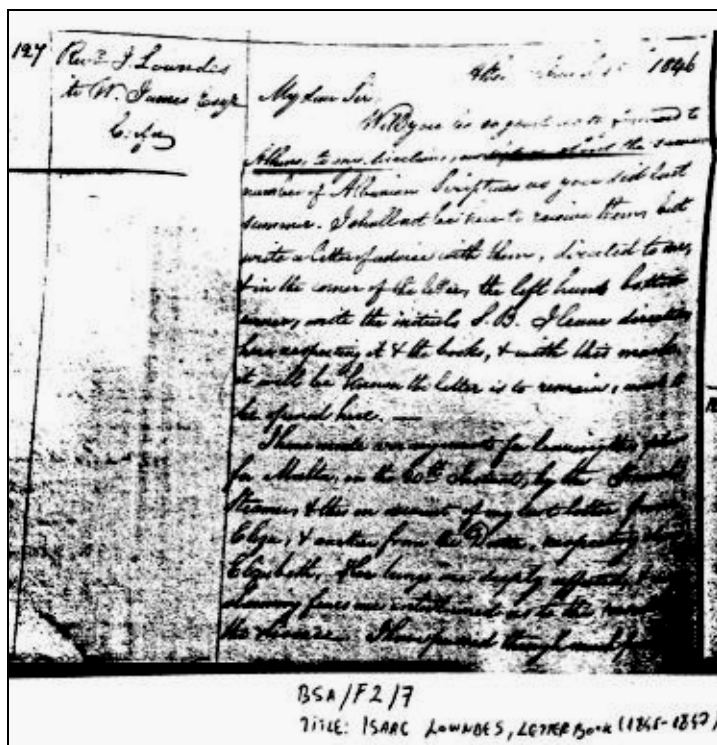 127
Revd. I. Lowndes
to W. James Esqr
1846
My dear Sir,
Will you be so good as to forward to
Athens, to my direction, about the same
number of Albanian Scriptures as you did last
summer. I shall not be here to receive them, but
write a letter of advice with them, directed to me,
& in the corner of the letter, the left hand bottom
corner, write the initials S.B. I leave directions
here respecting it & the books, & with this mark,
it will be known the letter is to remain, & not to
be opened here. —
I have made arrangements for leaving this place
for Malta, on the 6th Instant, by the French
Steamer, & this on account of my last letter from
Eliza, & another from the Doctor, respecting dear
Elizabeth. Her lungs are deeply affected, &
fears are entertained as to the
the disease. I have passed through much
BSA/F2/7
TITLE: ISAAC LOWNDES, LETTER Book (1845-1857)